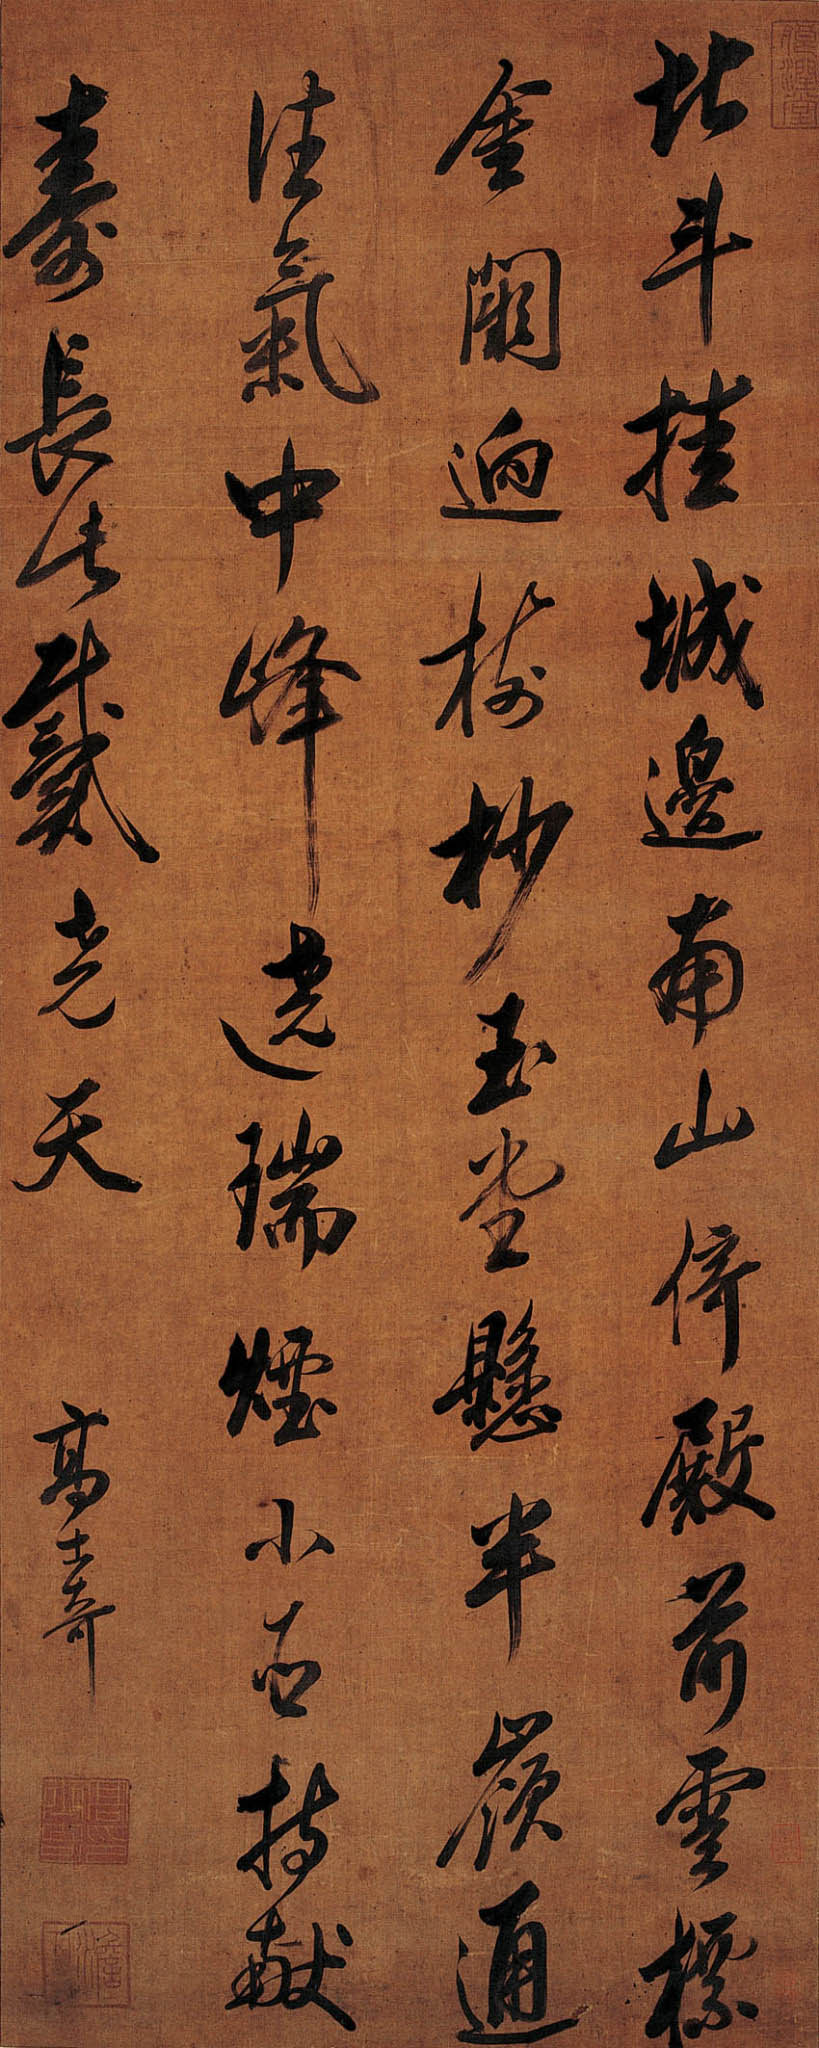 北斗挂城邊南山倚殿前雲標
金闕迥樹杪玉堂懸半嶺通
佳氣中峰遶瑞煙小臣持獻
壽長此戴堯天
高士奇